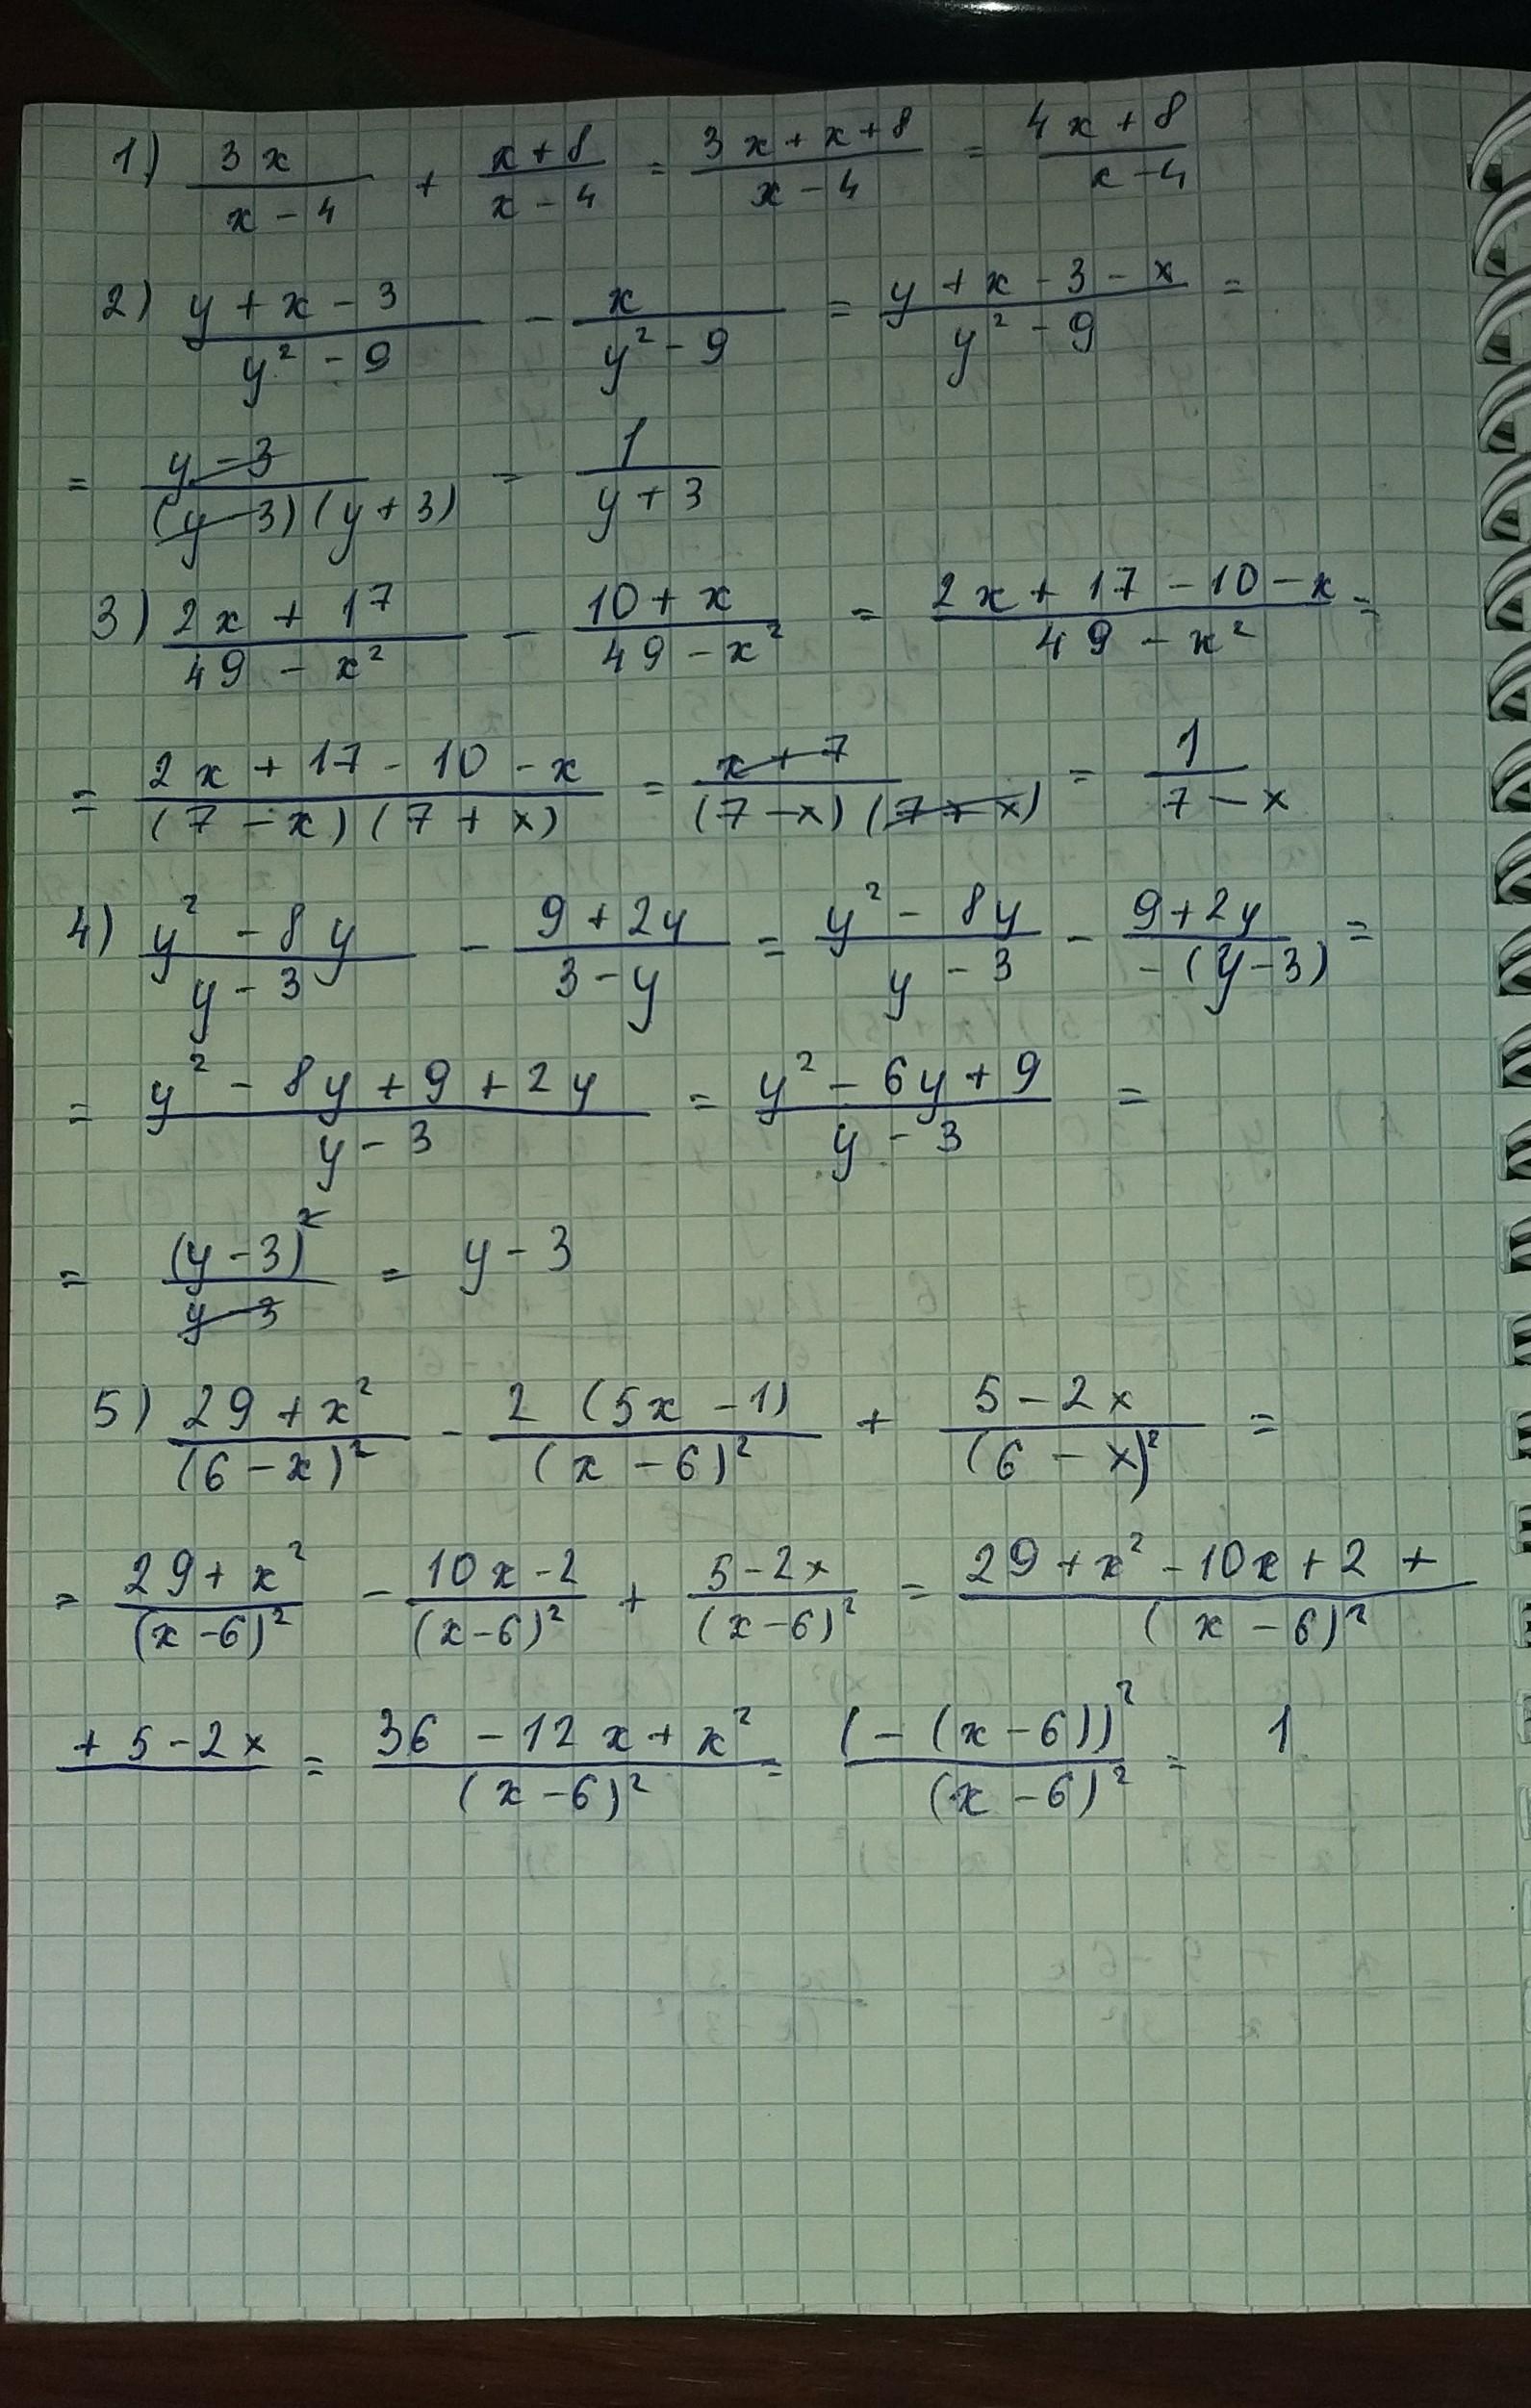 1) 3x/(x-4) + (x+8)/(x-4) = (3x+x+8)/(x-4) = (4x+8)/(x-4)
2) (y+x-3)/(y²-9) - x/(y²-9) = (y+x-3-x)/(y²-9) =
= (y-3)/((y-3)(y+3)) = 1/(y+3)
3) (2x+17)/(49-x²) - (10+x)/(49-x²) = (2x+17-10-x)/(49-x²) =
= (2x+17-10-x)/((7-x)(7+x)) = (x+7)/((7-x)(7+x)) = 1/(7-x)
4) (y²-8y)/(y-3) - (9+2y)/(3-y) = (y²-8y)/(y-3) - (9+2y)/(-(y-3)) =
= (y²-8y+9+2y)/(y-3) = (y²-6y+9)/(y-3) =
= (y-3)²/(y-3) = y-3
5) (29+x²)/(6-x)² - 2(5x-1)/(x-6)² + (5-2x)/(6-x)² =
= (29+x²)/(x-6)² - (10x-2)/(x-6)² + (5-2x)/(x-6)² = (29+x²-10x+2+)/(x-6)²
+5-2x = (36-12x+x²)/(x-6)² = (-(x-6))²/(x-6)² = 1